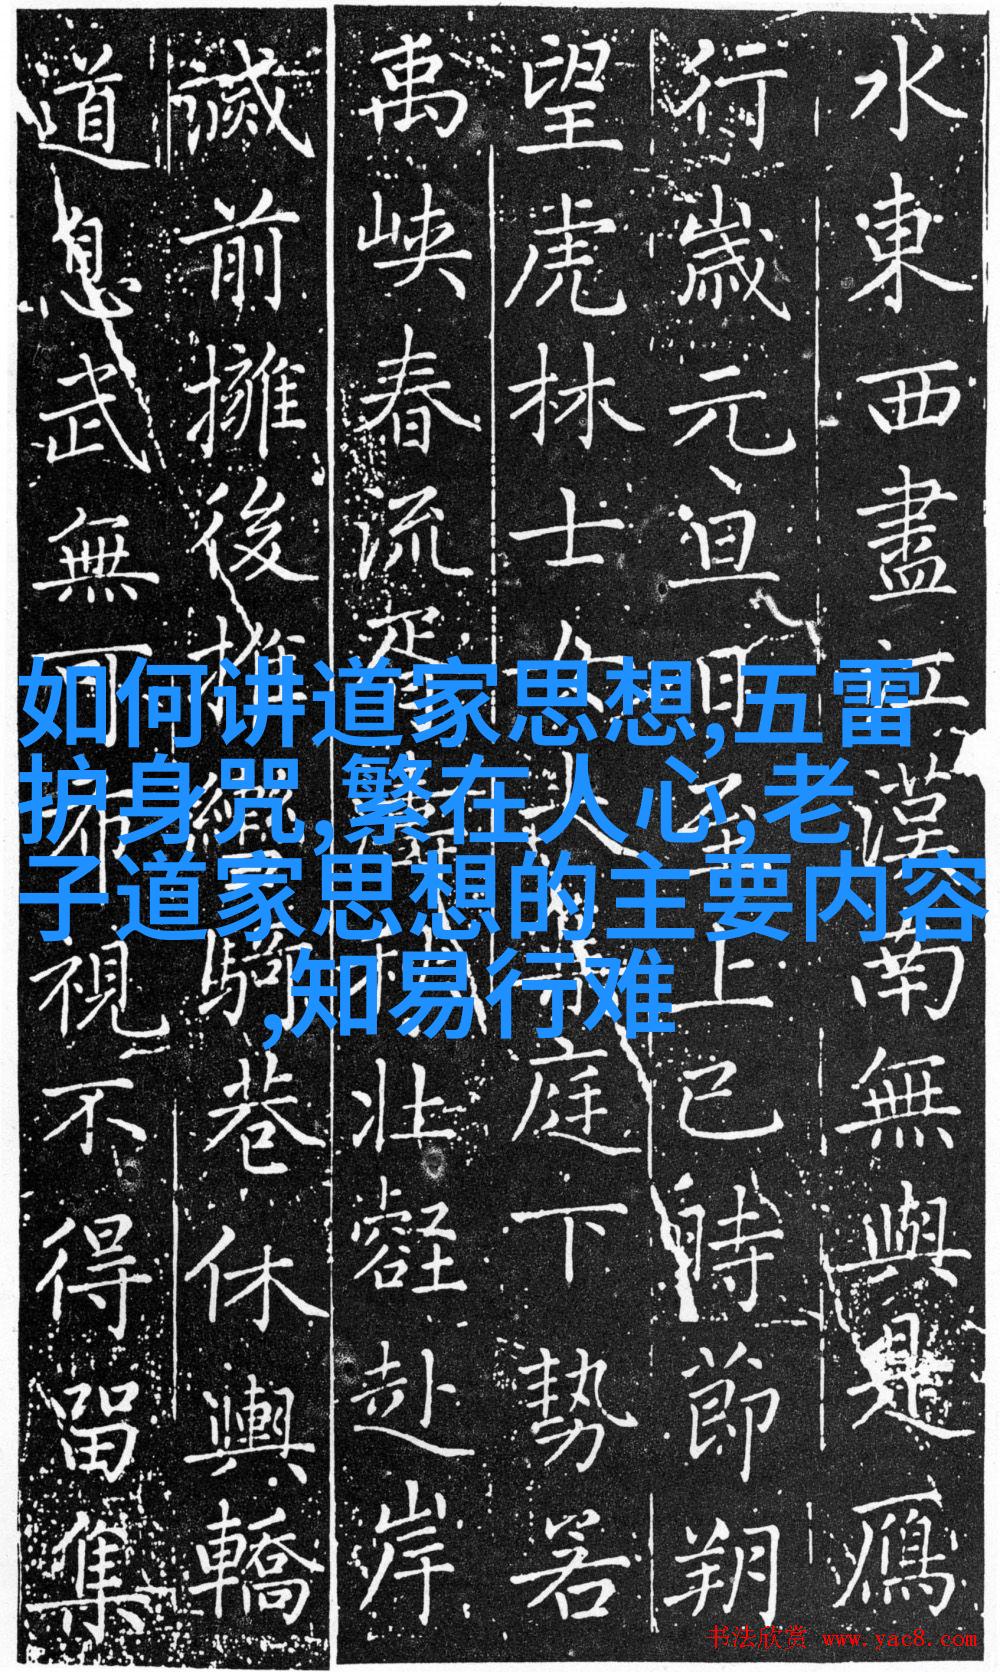 水東西盡江漢南無與是鴈
行歲元旦日至上巳時節朔
望虎林士女庭下勢若
禹峽春流胥濤秋壯壑赴岸
前擁後推騎巷休輿轎
道息武無可視不得留集
如何讲道家思想,五雷
护身咒,繁在人心,老
子道家思想的主要内容
,知易行难
书法欣赏 www.yac8.com